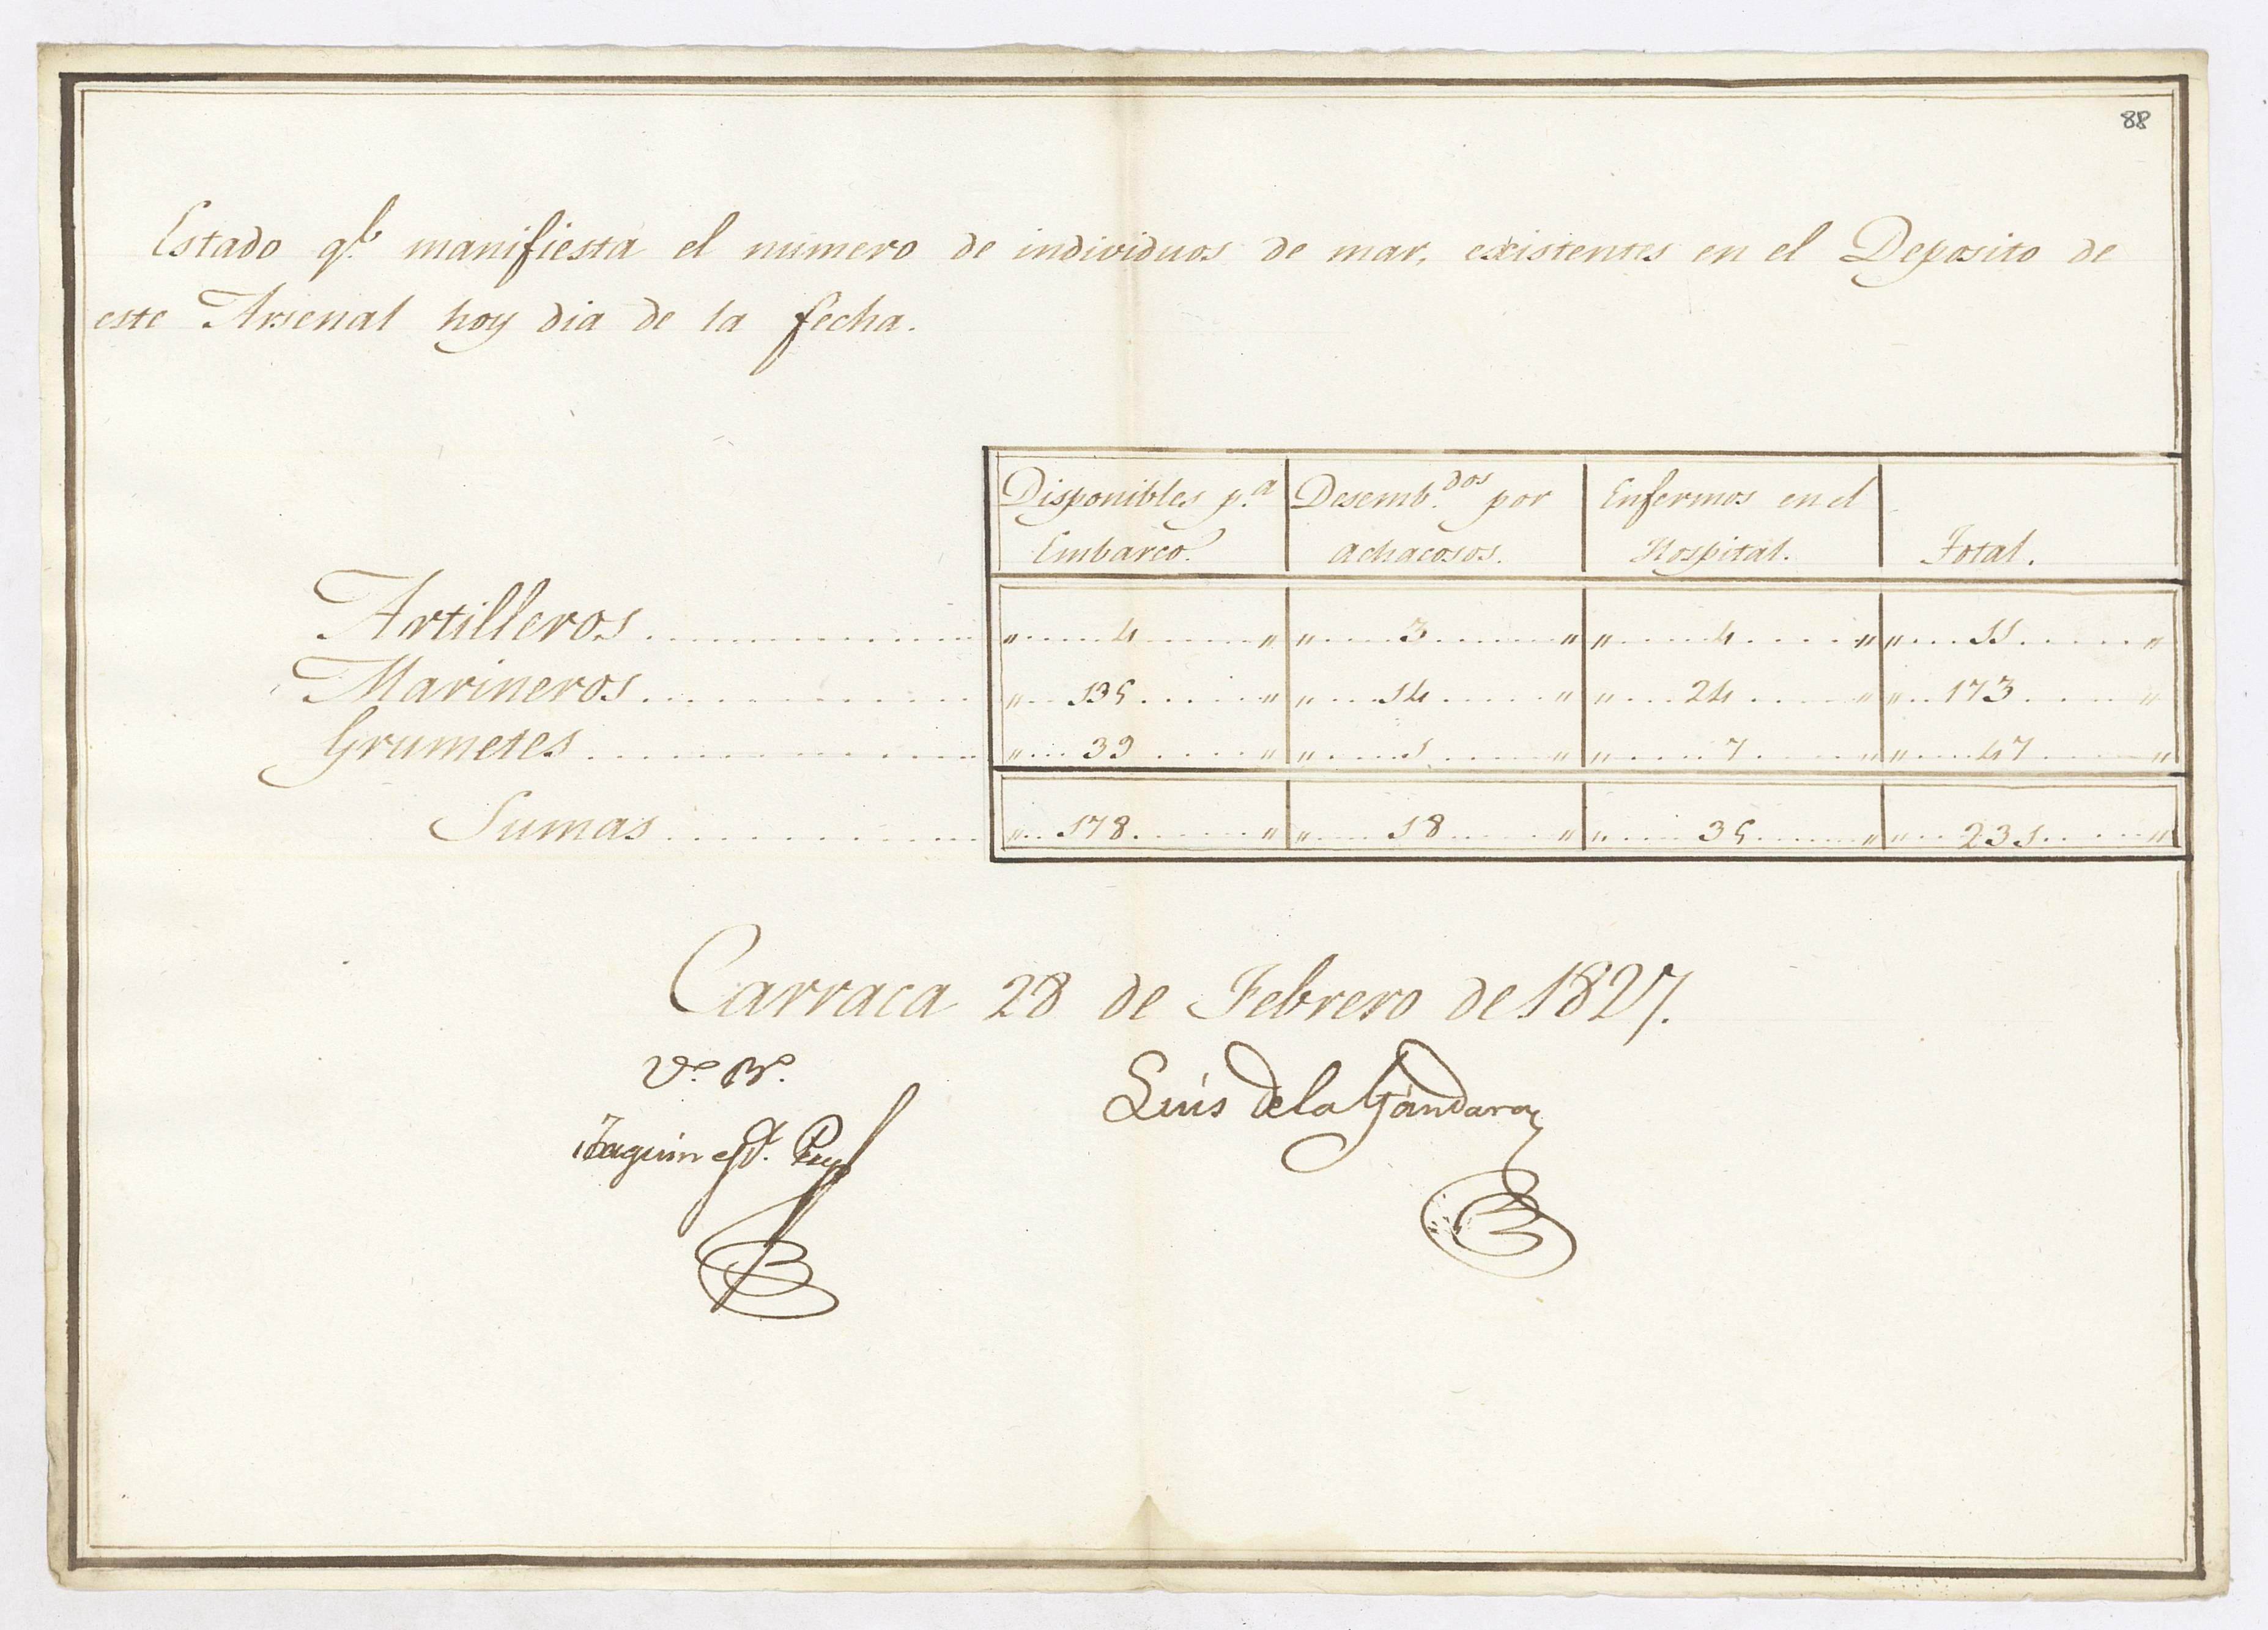 88
Estado qe. manifiesta el numero de individuos de mar, existentes en el Deposito de
este Arsenal hoy dia de la fecha.
Disponibles p.a Embarco. Desemb.dos por achacosos. Enfermos en el Hospital. Total.
Artilleros.......... „.....4.....„ „.....3.....„ „.....4.....„ „.....11.....„
Marineros.......... „...135.....„ „....14.....„ „....24.....„ „...173.....„
Grumetes.......... „....39.....„ „.....1.....„ „.....7.....„ „.....47.....„
Sumas.......... „..178.....„ „.....18.....„ „.....35.....„ „....231.....„
Carraca 28 de Febrero de 1827.
V.o B.o
Luis de la Gándara